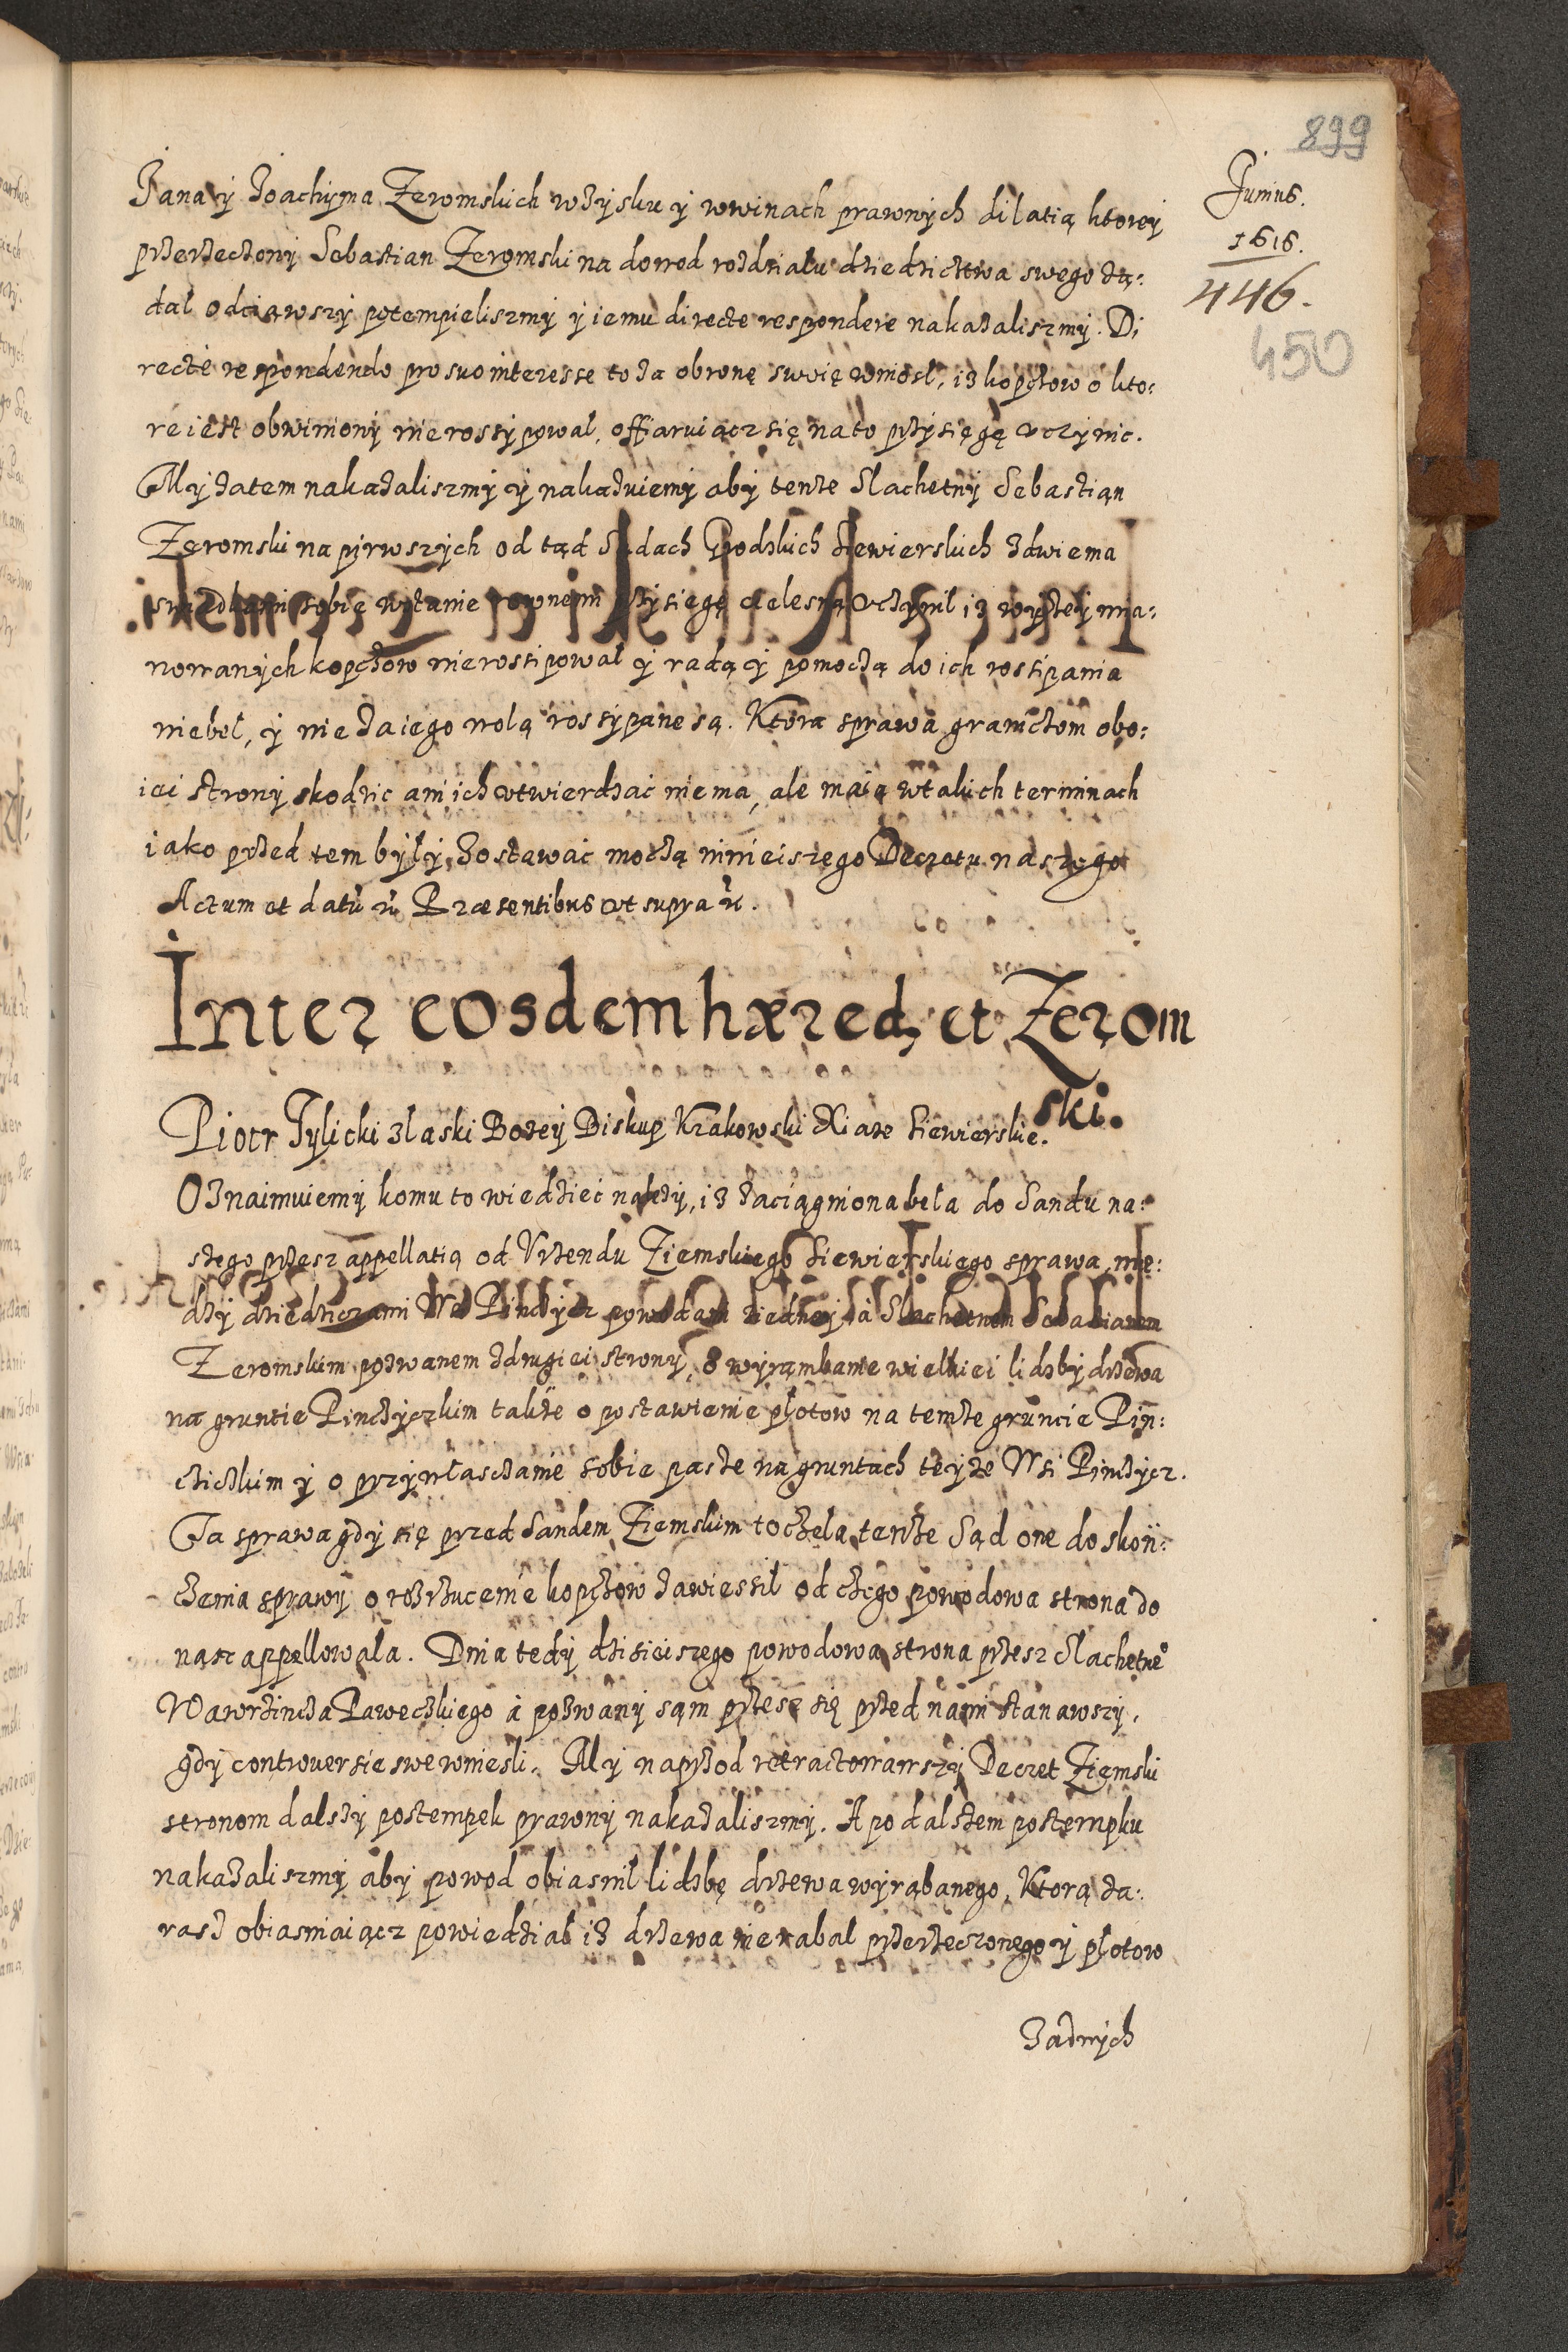 899
Junius.
1616.
446.
450
Jana y Joachyma Zeromskich wzysku y wwinach prawnych dilatią ktorey
przerzeczony Sebastian Zeromski na dowod rozdziału dziedzictwa swego żą:
dał odciąwszy potempieliszmy y iemu directe respondere nakazaliszmy. Di
recte respondendo pro suo interesse to za obronę swoię wniosł, iż kopczow o kto:
re iest obwiniony nie rossypował, offiaruiącz się na to przysięgę vczynic.
My zatem nakazaliszmy y nakazuiemy aby tenże Slachetny Sebastian
Zeromski na pirwszych od tąd Sądach Grodzkich Siewierskich zdwiema
swiadkami sobie wstanie rownemi przysięgę cielesną vczynił iż wyszey mia:
nowanych kopczow nierossipował y radą y pomoczą do ich rossipania
niebeł, y nie za iego wolą rossypane są. Ktora sprawa graniczom obo:
iei strony skodzic ani ich vtwierdzać niema, ale maią wtakich terminach
iako przed tem były, zostawać moczą ninieiszego Decretu naszego
Actum et datū rc̄ Præsentibus vt supra rc̄.
Inter eosdem hæred; et Zerom
ski.
Piotr Tylicki z laski Bozey Biskup Krakowski Xiaze Siewierskie.
Oznaimuiemy komu to wiedzieć należy, iż zaciągniona beła do Sandu na:
szego przesz appellatią od Vrzendu Ziemskiego Siewierskiego sprawa, mię:
dzy dziedziczami Wsi Pinczycz powodami ziedney à Slachetnem Sebastianem
Zeromskim pozwanem z drugiei strony, o wyrąmbanie wielkiei liczby drzewa
na gruntie Pinczyczkim także o postawienie płotow na temże gruncie Pin:
cziczkim y o przywłasczanie sobie pasze na gruntach teyże Wsi Pinczycz.
Ta sprawa gdy się przed Sandem Ziemskim toczeła tenże Sąd one do skoń:
czenia sprawy o rozrzucenie kopczow zawiessił od czego powodowa strona do
nasz appellowała. Dnia tedy dzisieiszego powodowa strona przesz Slachetne°
Wawrzincza Paweczkiego à pozwany sąm przesz się przed nami stanąwszy,
gdy controuersie swe wniesli. My naprzod retractowawszy Decret Ziemski
stronom dalszy postempek prawny nakazaliszmy. A po dalszem postempku
nakazaliszmy aby powod obiasnił liczbę drzewa wyrąbanego, Ktorą za:
rasz obiasniaiącz powiedział iż drzewa nierabał przerzeczonego y płotow
Zadnych